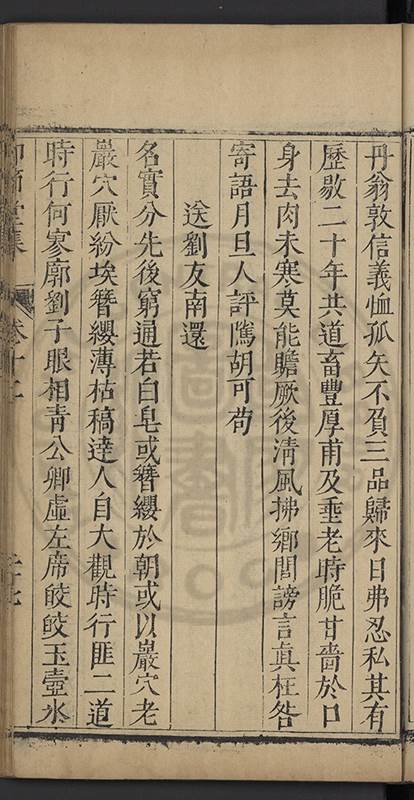 丹翁敦信義恤孤矢不負三品歸來日弗忍私其有
歷敭二十年共道畜豐厚甫及垂老時脆甘嗇於口
身去肉未寒莫能贍厥後清風拂鄉閭謗言眞枉咎
寄語月旦人評隲胡可苟
送劉友南還
名實分先後窮通若白皂或簪纓於朝或以巖穴老
巖穴厭紛埃簪纓薄枯稿達人自大觀時行匪二道
時行何寥廓劉子眼相青公卿虛左席皎皎玉壺氷
卷十二